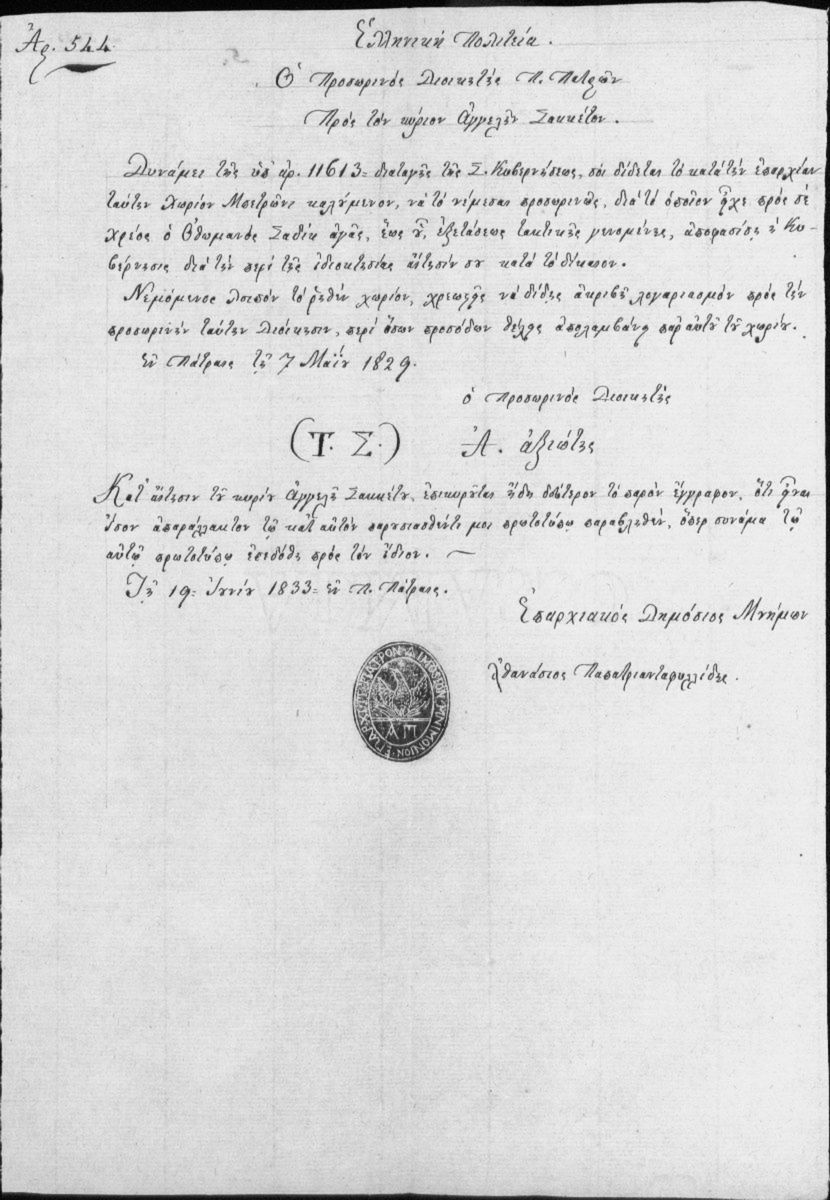 Ἀρ. 544.
Ἑλληνικὴ Πολιτεία.
Ὁ Προσωρινὸς Διοικητὴς Π. Πατρῶν
Πρὸς τὸν κύριον Ἀγγελῆν Σακκέτον.
Δυνάμει τῆς ὑπ' ἀρ. 11613= διαταγῆς τῆς Σ. Κυβερνήσεως, σοὶ δίδεται τὸ κατὰ τὴν ἐπαρχίαν
ταύτην χωρίον Μπετρῶνι καλούμενον, νὰ τὸ νέμεσαι προσωρινῶς, διὰ τὸ ὁποῖον εἶχε πρὸς σὲ
χρέος ὁ Ὀθωμανὸς Σαδὶκ ἀγᾶς, ἕως οὗ, ἐξετάσεως τακτικῆς γενομένης, ἀποφασίσῃ ἡ Κυ-
βέρνησις διὰ τὴν περὶ τῆς ἰδιοκτησίας αἴτησίν σου κατὰ τὸ δίκαιον.
Νεμόμενος λοιπὸν τὸ ῥηθὲν χωρίον, χρεωστεῖς νὰ δίδῃς ἀκριβῆ λογαριασμὸν πρὸς τὴν
προσωρινὴν ταύτην Διοίκησιν, περὶ ὅσων προσόδων θέλεις ἀπολαμβάνῃ παρ' αὐτοῦ τοῦ χωρίου.
Ἐν Πάτραις τῇ 7 Μαΐου 1829.
ὁ Προσωρινὸς Διοικητὴς
(Τ. Σ.) Α. ἀξιώτης
Κατ' αἴτησιν τοῦ κυρίου Ἀγγελῆ Σακκέτου, ἐπικυροῦται ἤδη δεύτερον τὸ παρὸν ἔγγραφον, ὅτι εἶναι
ἴσον ἀπαράλλακτον τῷ κατ' αὐτὸν παρουσιασθέντι μοι πρωτοτύπῳ παραβληθὲν, ὅπερ συνάμα τῷ
αὐτῷ πρωτοτύπῳ ἐπεδόθη πρὸς τὸν ἴδιον. —
Τῇ 19= Ἰουνίου 1833= ἐν Π. Πάτραις.
Ἐπαρχιακὸς Δημόσιος Μνήμων
Ἀθανάσιος Παπατριανταφυλλίδης.
Α Π